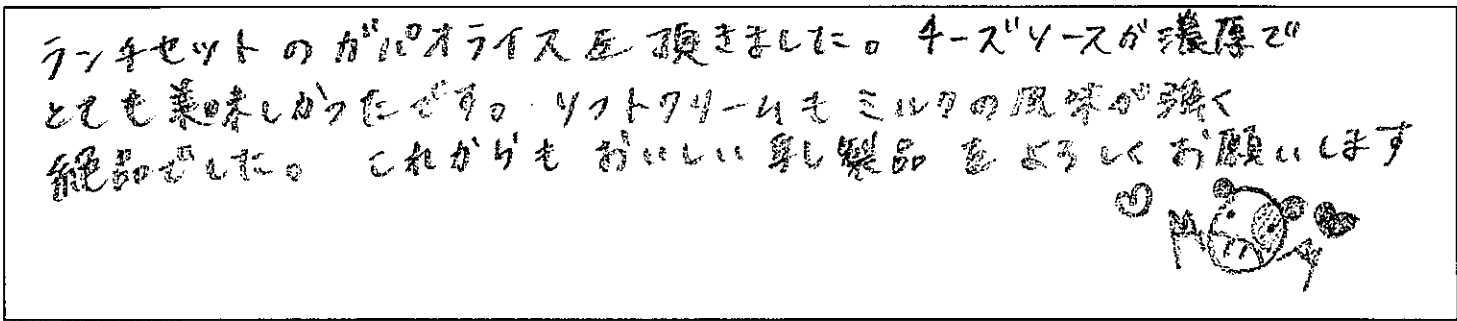 ランチセットのガパオライスを頂きました。チーズソースが濃厚で
とても美味しかったです。ソフトクリームもミルクの風味が強く
絶品でした。これからもおいしい乳製品をよろしくお願いします